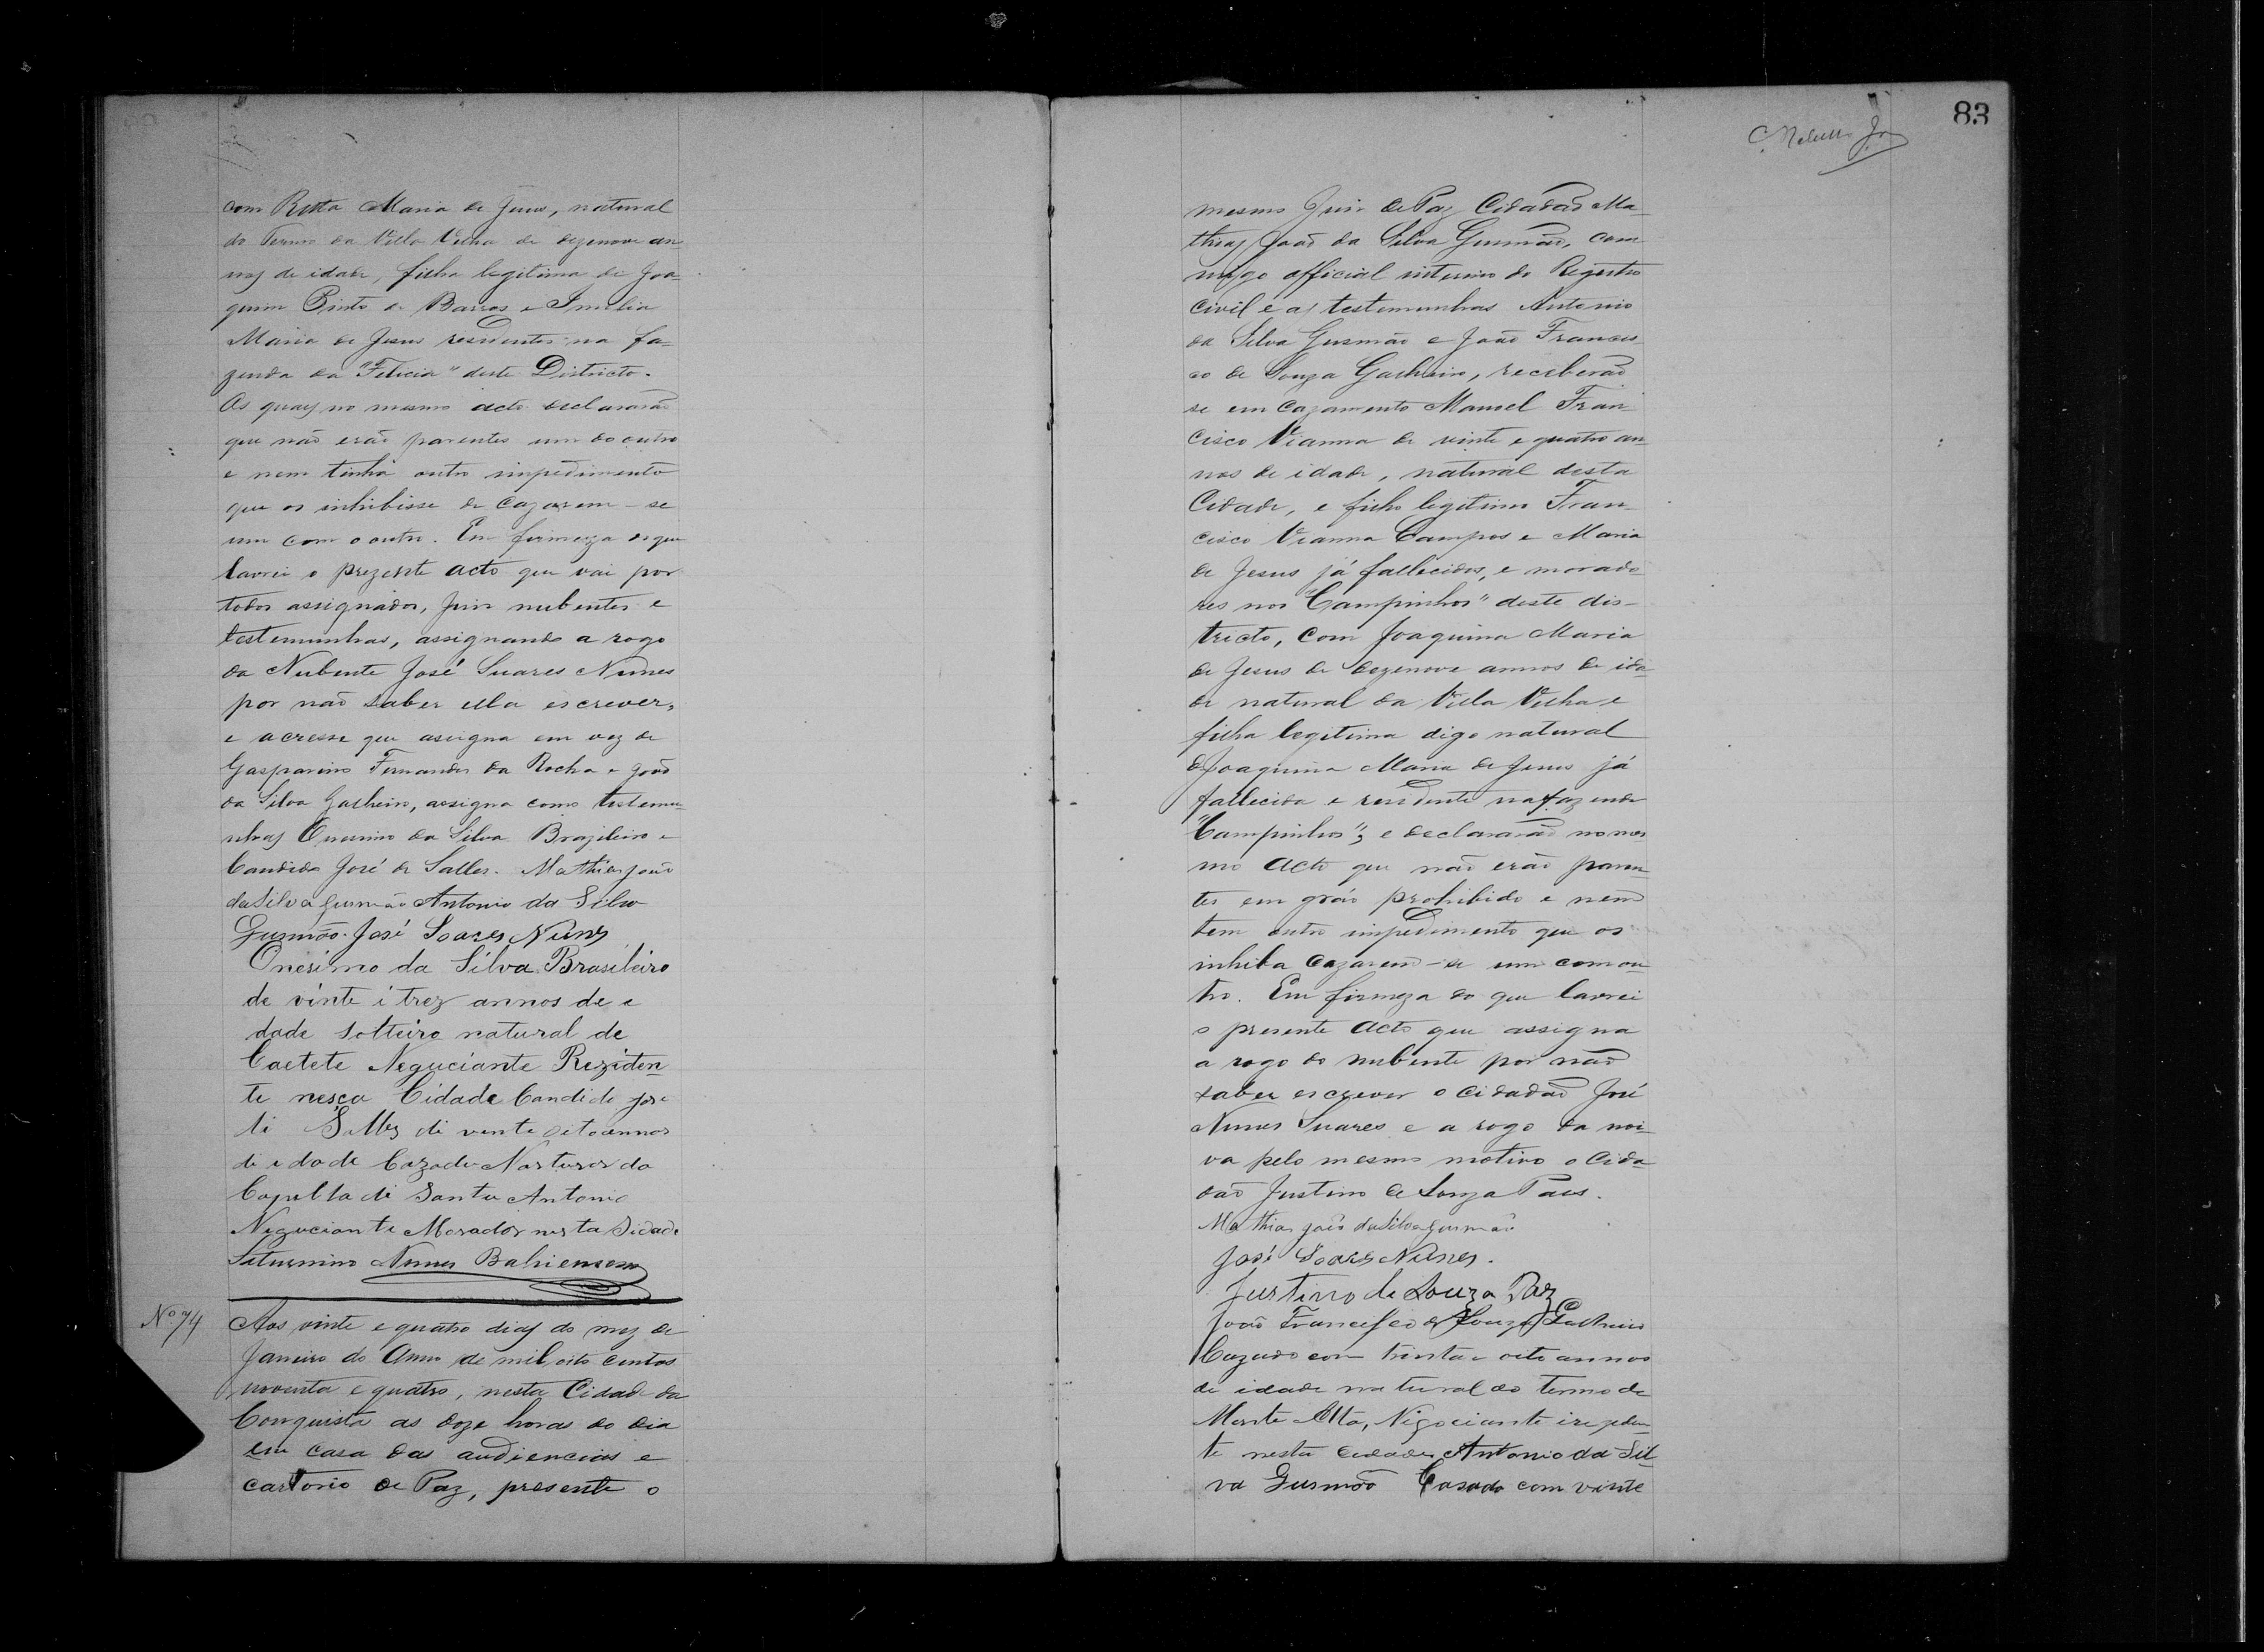 com Ritta Maria de Jesus, natural
do Termo da Villa Velha de dezenove an
nos de idade, filha legitima de Joa-
quim Pinto de Barros e Imilia
Maria de Jesus residentes na fa-
zenda da "Felicia" deste Districto.
Os quaes no mesmo acto declararão
que não erão parentes um do outro
e nem tinha outro impedimento
que os inhibisse de cazarem-se
um com o outro. Em firmeza do que
lavrei o prezente acto que vai por
todos assignados, Juis nubentes e
testemunhas, assignando a rogo
da Nubente José Suares Nunes
por não saber ella escrever,
e acresse que assigna em vez de
Gasparino Fernandes da Rocha e João
da Silva Gacheiro, assigna como testemu-
nhas Onesimo da Silva Brazileiro e
Candido José de Salles. Mathias João
da Silva Gusmão Antonio da Silva
Gusmão. José Soares Nunes
Onesimo da Silva Brasileiro
de vinte i trez annos de e
dade solteiro natural de
Caetete Neguciante Reziden
te nesça Cidade Candido Jose
di Salles di vente oito annos
di idade Cazado Narturar da
Capella di Santo Antonio
Neguciante Morador nesta Sidade
Saturnino Nunes Bahiense
Nº 74
Aos vinte e quatro dias do mez de
Janeiro do Anno de mil oito centos
noventa e quatro, nesta Cidade da
Conquista as doze horas do dia
em casa das audiencias e
cartorio de Paz, presente o
83
mesmo Juis de Paz Cidadão Ma-
thias João da Silva Gusmão, com
migo official interino do Registro
Civil e as testemunhas Antonio
da Silva Gusmão e João Francis-
co de Souza Gacheiro, receberão
se em Cazamento Manoel Fran-
cisco Vianna de vinte e quatro an-
nos de idade, natural desta
Cidade, e filho legitimo Fran-
cisco Vianna Campos e Maria
de Jesus já fallecidos, e morado-
res nos "Campinhos" deste dis-
tricto, com Joaquina Maria
de Jesus de dezenove annos de ida-
de natural da Villa Velha e
filha legitima digo natural
de Joaquina Maria de Jesus já
fallecida e residente na fazenda
"Campinhos"; e declararão no mes-
mo acto que não erão paren-
tes em gráo prohibido e nem
tem outro impedimento que os
inhiba cazarem-se um com ou-
tro. Em firmeza do que lavrei
o presente acto que assigna
a rogo do nubente por não
saber escrever o cidadão José
Nunes Suares e a rogo da noi-
va pelo mesmo motivo o Cida-
dão Justino de Souza Paes.
Mathias João da Silva Gusmão
José Soares Nunes.
Justino de Souza Paz
João Francisco de Souza Gacheiro
Cazado com trinta e oito annos
de idade natural do termo de
Monte Alto, Nigociante i reziden-
te nesta cidade, Antonio da Sil-
va Gusmão Casado com vinte